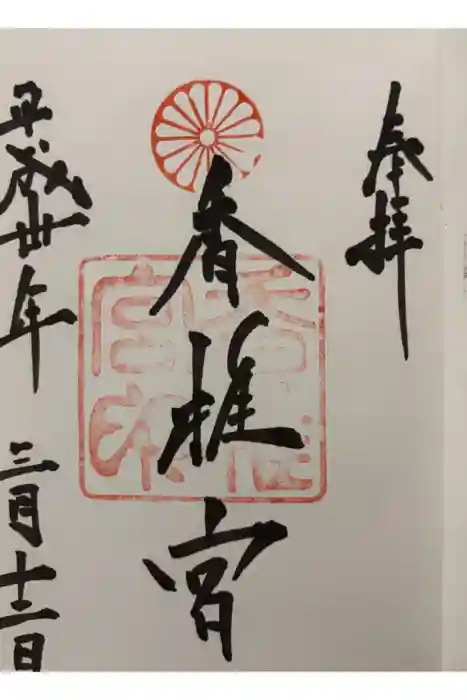 奉拝
香椎宮
平成卅年三月十三日
香椎宮印